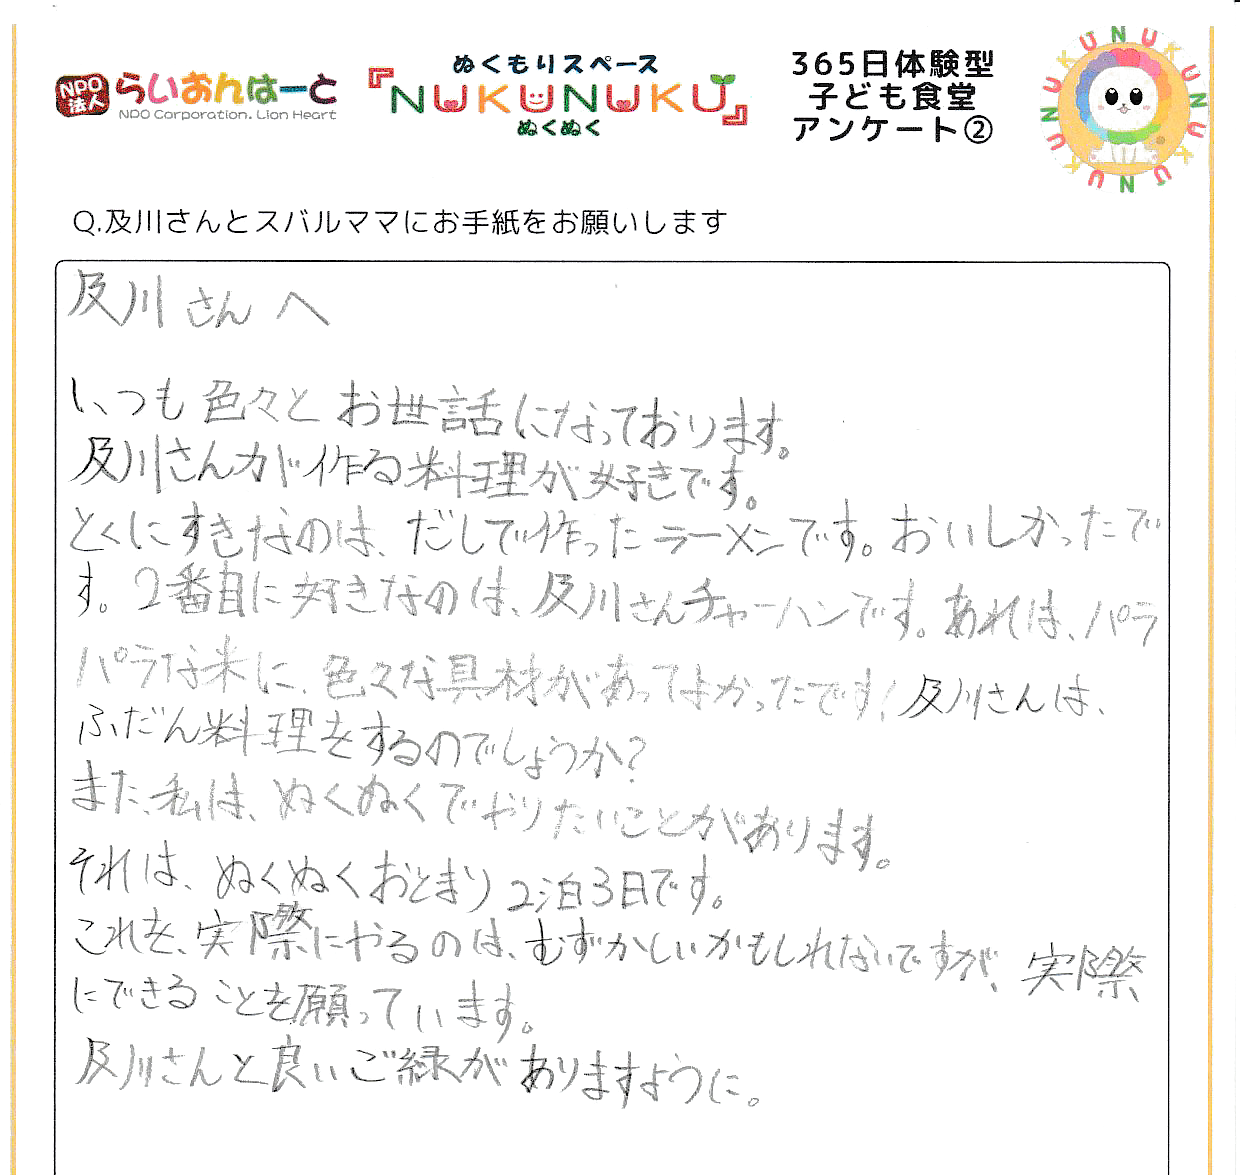 NPO法人 らいおんはーと
NPO Corporation. Lion Heart
ぬくもりスペース
『NUKUNUKU』
ぬくぬく
365日体験型
子ども食堂
アンケート②
NUKUNUKUNUKUNUKU
Q.及川さんとスバルママにお手紙をお願いします
及川さんへ
いつも色々とお世話になっております。
及川さんが作る料理が好きです。
とくにすきなのは、だしで作ったラーメンです。おいしかったで
す。2番目に好きなのは、及川さんチャーハンです。あれは、パラ
パラな米に、色々な具材があってよかったです!及川さんは、
ふだん料理をするのでしょうか?
また、私は、ぬくぬくでやりたいことがあります。
それは、ぬくぬくおとまり2泊3日です。
これを、実際にやるのは、むずかしいかもしれないですが、実際
にできることを願っています。
及川さんと良いご縁がありますように。